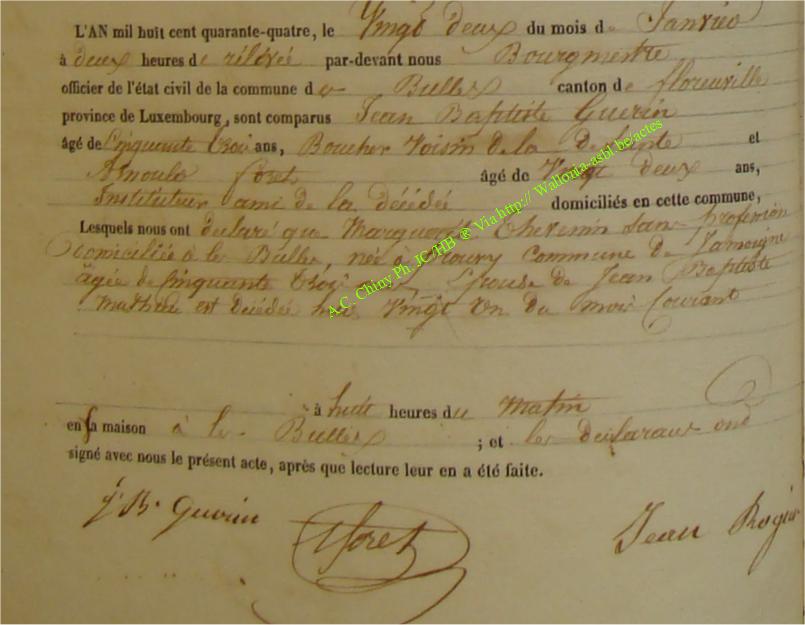 L'AN mil huit cent quarante-quatre, le Vingt deux du mois de Janvier
à deux heures de rélévée par-devant nous Bourgmestre
officier de l'état civil de la commune de Bulles canton de florenville
province de Luxembourg, sont comparus Jean Baptiste Guerin
âgé de Cinquante trois ans, Boucher Voisin de la défunte et
Arnould foret âgé de Vingt deux ans,
Instituteur ami de la décédée domiciliés en cette commune,
Lesquels nous ont declaré que Marguerite Thevenin sans profession
domiciliée à les Bulles née à commune de Jamoigne
âgée de Cinquante trois Epouse de Jean Baptiste
Mathieu est décédée hier Vingt un du mois Courant
à huit heures du Matin
en sa maison à les Bulles ; et les declarans ont
signé avec nous le présent acte, après que lecture leur en a été faite.
J. B. Guerin foret Jean Rogier
A.C. Chiny Ph. JC/HB ® Via http:// Wallonia-asbl be/actes